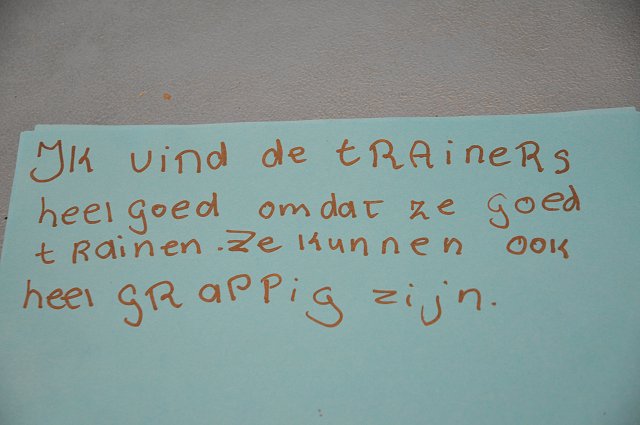 Ik vind de tRAineRs
heel goed omdat ze goed
tRainen. Ze kunnen ook
heel gRappig zijn.